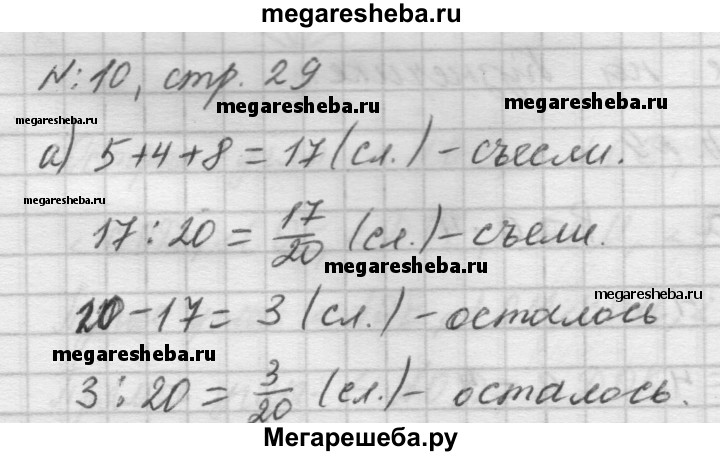 megaresheba.ru
N: 10, стр. 29
megaresheba.ru megaresheba.ru
megaresheba.ru
а) 5+4+8 = 17 (сл.) - съесли.
megaresheba.ru
17 : 20 = 17/20 (сл.) - съели.
megaresheba.ru
megaresheba.ru
20 - 17 = 3 (сл.) - осталось
megaresheba.ru
3 : 20 = 3/20 (сл.) - осталось.
Мегарешеба.ру